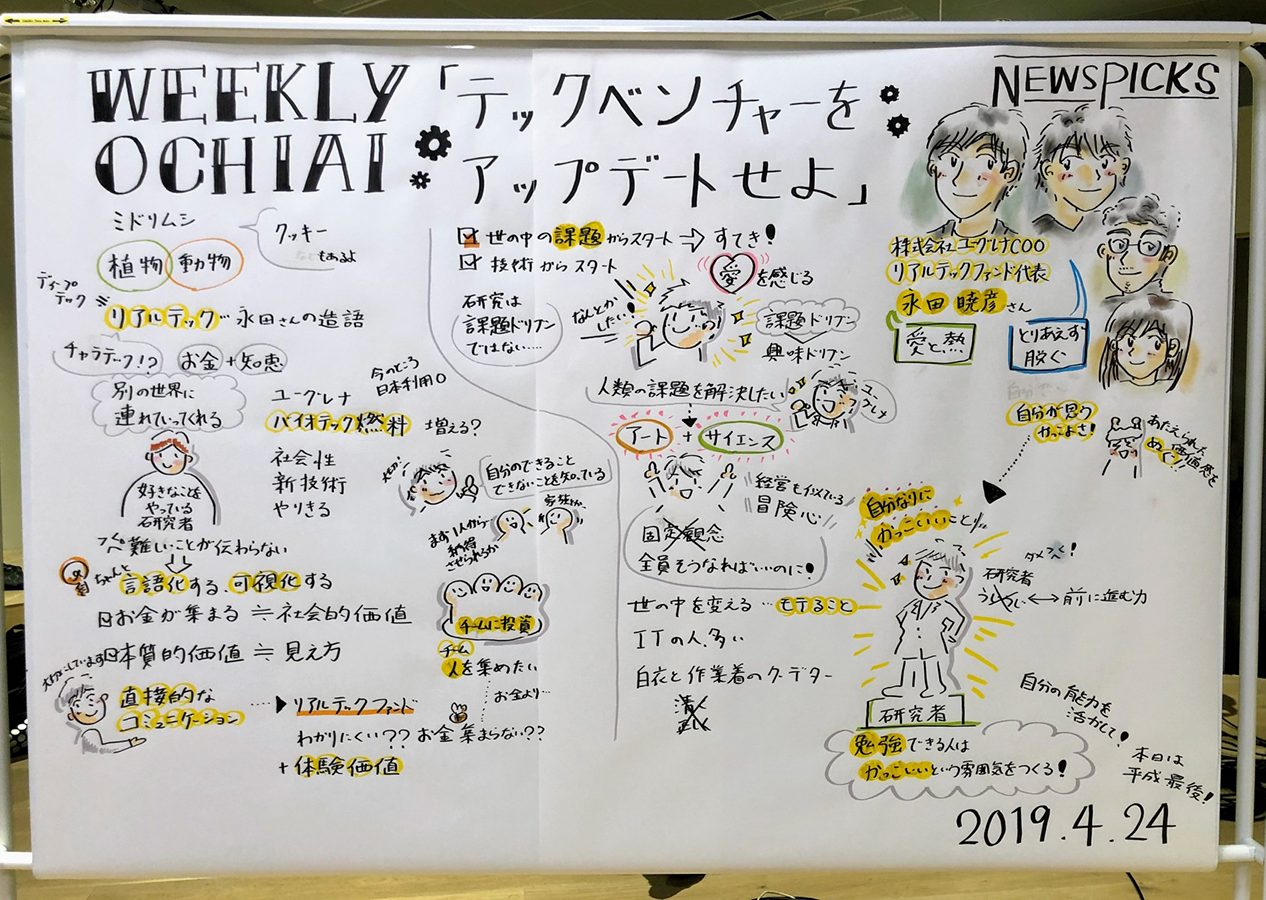 WEEKLY
OCHIAI
「テックベンチャーを
アップデートせよ」
NEWSPICKS
ミドリムシ
植物 動物
クッキー
もあるよ
ディープ
テック
リアルテック 永田さんの造語
チャラテック!?
お金+知恵
別の世界に
連れていってくれる
好きなことを
やっている
研究者
難しいことが伝わらない
ちゃんと
言語化する、可視化する
お金が集まる ≒ 社会的価値
本質的価値 ≒ 見え方
大切にしています
直接的な
コミュニケーション
リアルテックファンド
わかりにくい?? お金集まらない??
+体験価値
ユーグレナ
バイオテック燃料
今のところ
日本利用0
増える?
社会性
新技術
やりきる
自分のできること
できないことを知っている
まず1人から
納得
させられるか
家族とか
チームに投資
チーム
人を集めたい
お金より…
世の中の課題からスタート ⇒ すてき!
技術からスタート
愛を感じる
研究は
課題ドリブン
ではない…
なんとか
したい!
課題ドリブン
興味ドリブン
人類の課題を解決したい
アート + サイエンス
経営も似ている
冒険心
固定観念
全員そうなればいいのに!
世の中を変える…モテること
ITの人多い
白衣と作業着のクーデター
株式会社ユーグレナCOO
リアルテックファンド代表
永田 暁彦さん
愛と熱
とりあえず
脱ぐ
自分が思う
かっこよさ!
あたえられた
価値感を
自分なりに
かっこいいこと
研究者
↔ 前に進む力
研究者
勉強できる人は
かっこいいという雰囲気をつくる!
自分の能力を
活かして!
本日は
平成最後!
2019.4.24